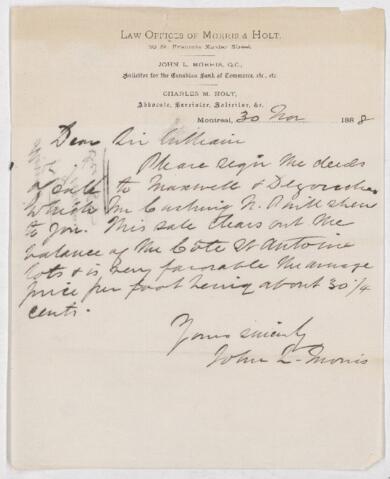 LAW OFFICES OF MORRIS & HOLT,
JOHN L. MORRIS, Q.C.,
Solicitor for the Canadian Bank of Commerce, etc., etc.
CHARLES M. HOLT,
Advocate, Barrister, Solicitor, &c.
Montreal, 30 Nov 1888
Dear Sir William
Please sign the deeds
of Sale to Maxwell &
which Mr Cushing N. P. will show
to you. This sale clears out the
balance of the Côte St Antoine
lots & is very favorable the average
price per foot being about 30 1/4
cents.
Yours sincerely
John L. Morris